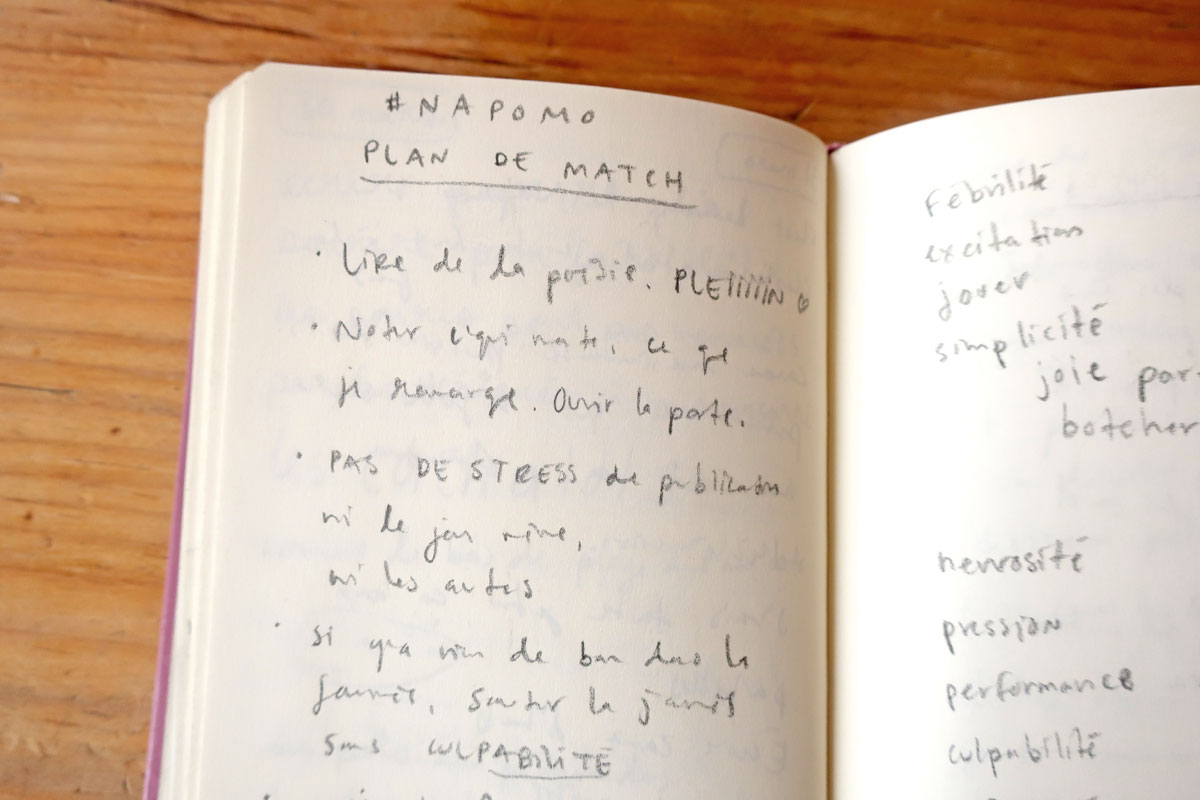 #NAPOMO
PLAN DE MATCH
· Lire de la poésie. PLEIIIIIN
· Noter c'qui reste, ce que
je remarque. Ouvrir la porte.
· PAS DE STRESS de publication
ni le jour même,
ni les autres
· si y'a rien de bon dans la
journée, sauter la journée
sans CULPABILITÉ
Fébrilité
excitation
jouer
simplicité
joie
botcher
nervosité
pression
performance
culpabilité